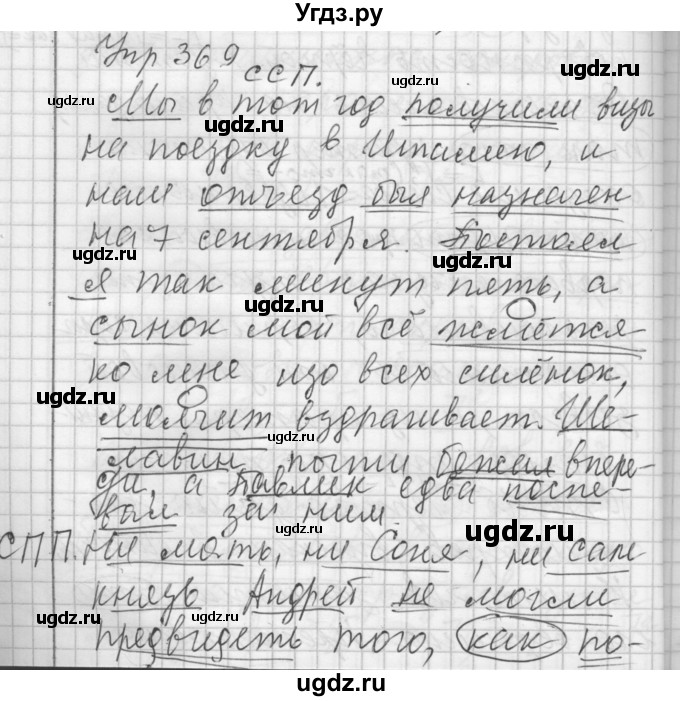 Угдз.ру
Упр 369
ССП.
Мы в тот год получили визы
на поездку в Италию, и
наш отъезд был назначен
на 7 сентября. Постоял
я так минут пять, а
сынок мой всё жмётся
ко мне изо всех силёнок,
молчит вздрагивает. Ше-
лавин почти бежал впере-
ди, а Павлик едва поспе-
вал за ним.
СПП. Ни мать, ни Соня, ни сам
князь Андрей не могли
предвидеть того, как по-
ugdz.ru